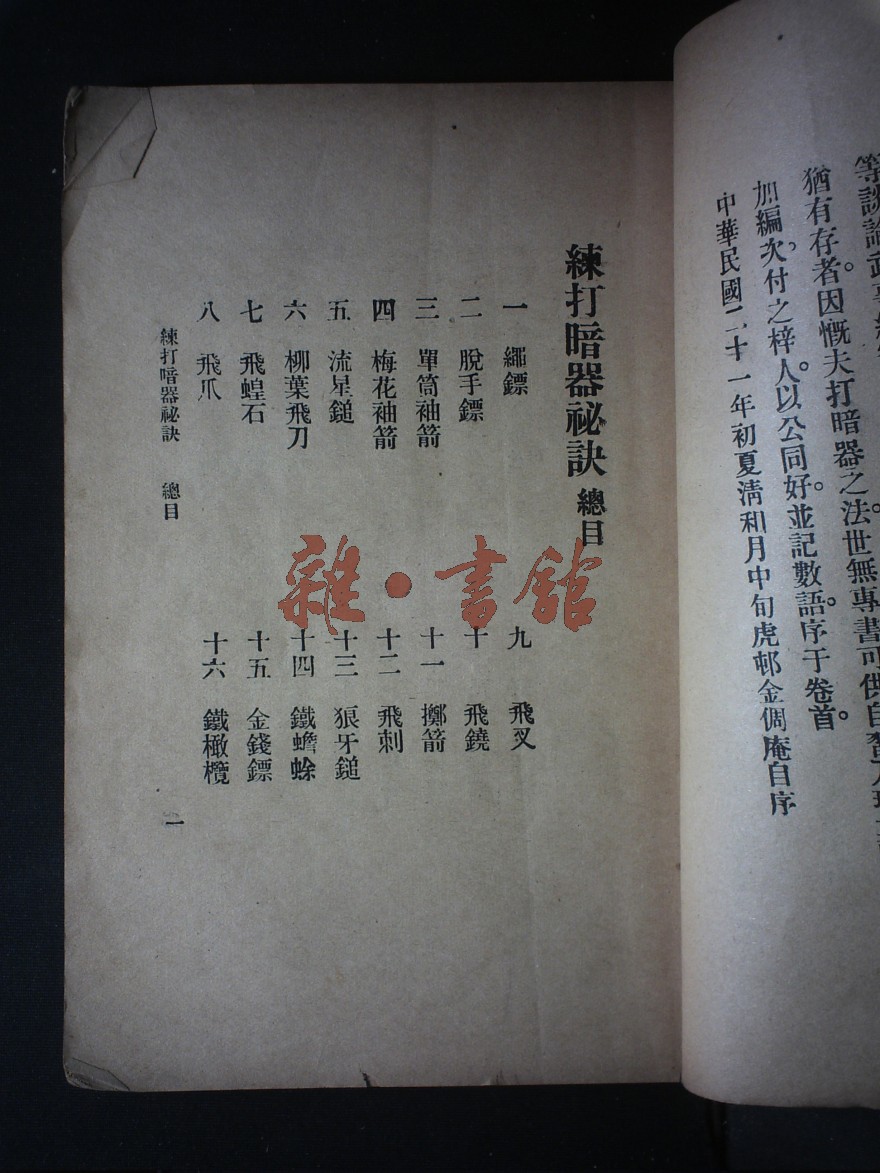 談論武事
猶有存者。因慨夫打暗器之法。世無專書可供自
加編次。付之梓人。以公同好。並記數語。序于卷首。
中華民國二十一年初夏清和月中旬虎邨金倜庵自序
練打暗器祕訣 總目
一 繩鏢
二 脫手鏢
三 單筒袖箭
四 梅花袖箭
五 流星鎚
六 柳葉飛刀
七 飛蝗石
八 飛爪
九 飛叉
十 飛鐃
十一 擲箭
十二 飛刺
十三 狼牙鎚
十四 鐵蟾蜍
十五 金錢鏢
十六 鐵橄欖
練打暗器祕訣 總目
一
雜·書館